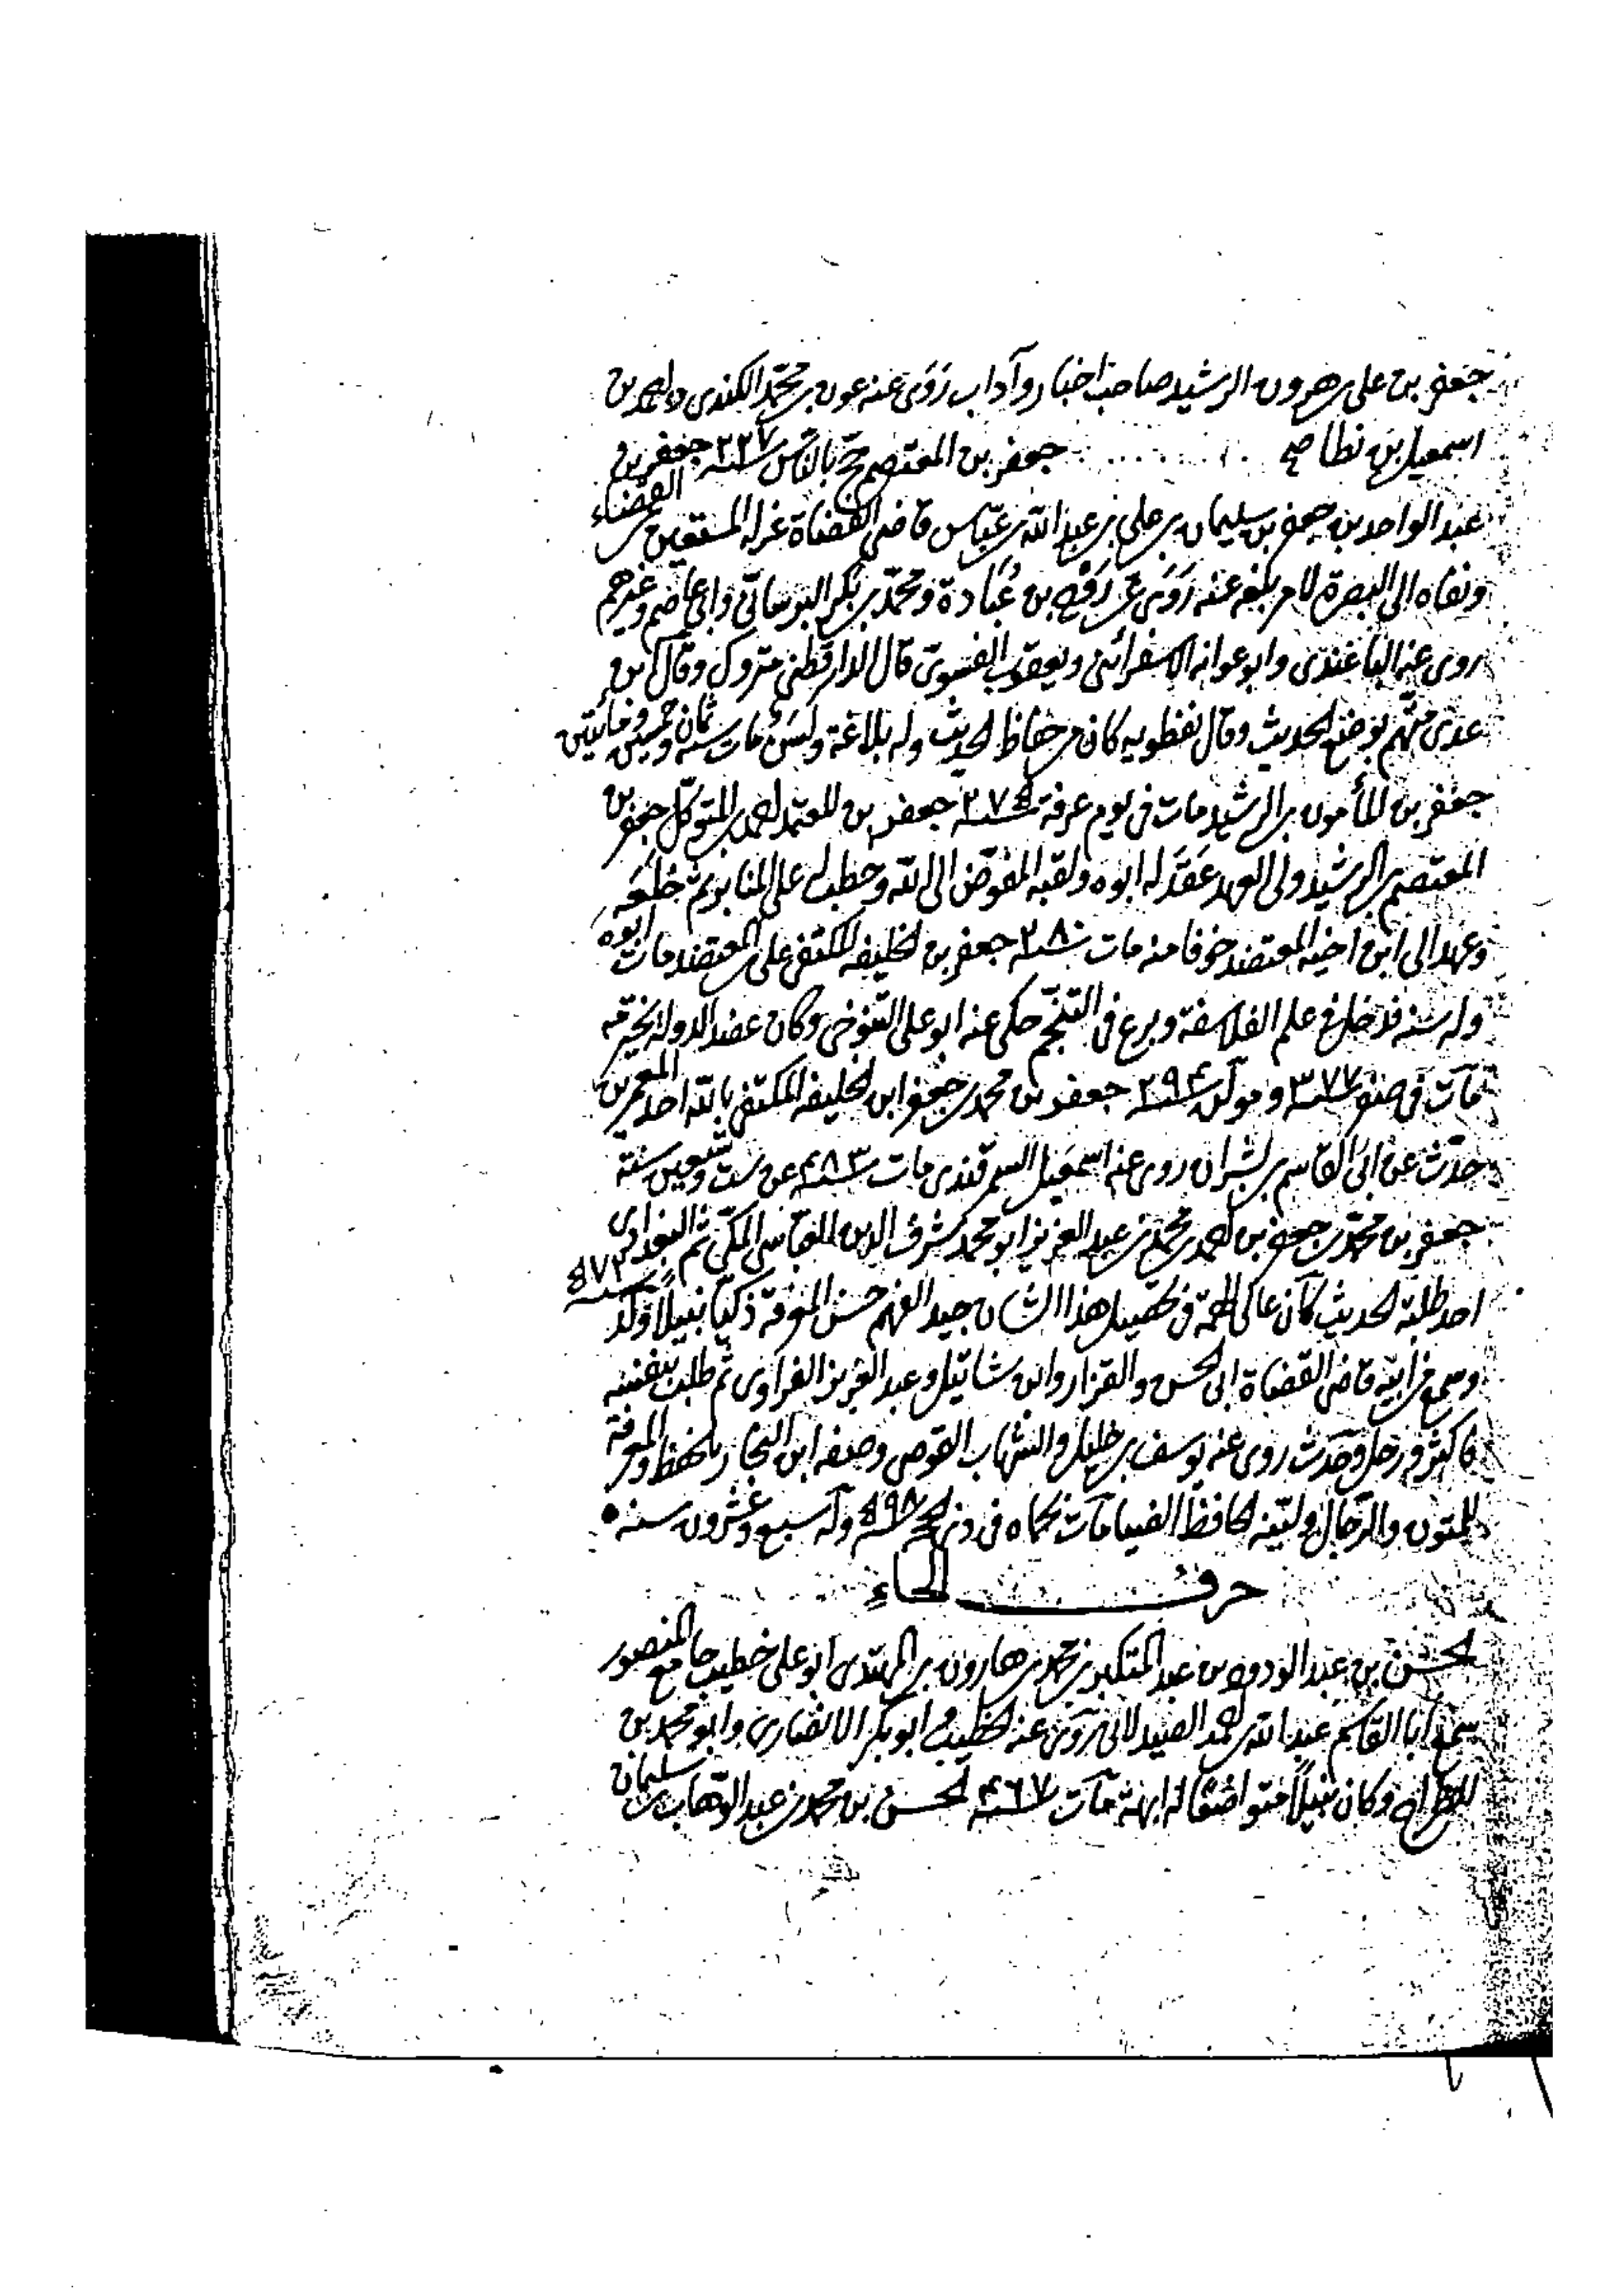 جعفر بن على بن هرون الرشيد صاحب اخبار وآداب روى عنه عون بن محمد الكندى واحمد بن
اسمعيل بن جعفر بن المعتصم حج بالناس سنة ٢٢٧ جعفر بن
عبد الواحد بن جعفر بن سليمان بن على بن عبد الله بن عباس قاضى القضاة عزله المستعين عن القضاء
ونفاه الى البصرة لامر بلغه عنه روى عن روح بن عبادة ومحمد بن بكر البرسانى وابى عاصم وغيرهم
روى عنه الباغندى وابو عوانه الاسفرائنى ويعقوب الفسوى قال الدارقطنى متروك وقال ابن
عدى متهم بوضع الحديث وقال نفطويه كان من حفاظ الحديث وله بلاغة ولسن مات سنة ثمان وخمسين ومائتين
جعفر بن المأمون بن الرشيد مات فى يوم عرفة سنة جعفر بن المعتمد احمد بن المتوكل جعفر بن
المعتصم بن الرشيد ولى العهد عقد له ابوه ولقبه المفوض الى الله وخطب له على المنابر ثم خلعه ابوه
وعهد الى ابن اخيه المعتضد خوفا منه مات سنة ٢٨٠ جعفر بن الخليفه المكتفى على بن المعتضد مات
وله سنه علم الفلاسفة وبرع فى التنجم حكى عنه ابو على التنوخى وكان عضد الدولة يحترمه
مات فى صفر سنة ٣٧٧ ومولده سنة ٢٩٤ جعفر بن محمد بن جعفر ابن الخليفه المكتفى بالله احد المعمرين
حدث عن ابى القاسم بن بشران روى عنه اسمعيل السمرقندى مات سنة ٤٨٣ عن ست وتسعين سنة
جعفر بن محمد بن جعفر بن احمد بن محمد بن عبد العزيز ابو محمد شرف الدين العباسى المكى ثم البغدادى
احد طلبة الحديث كان عالى الهمة فى تحصيل هذا الشان جيد الفهم حسن المعرفة ذكيا نبيلا ولد سنة ٥٧٢
وسمع من ابيه قاضى القضاة ابى الحسن والقزاز وابن شاتيل وعبد العزيز الفراوى ثم طلب بنفسه
فاكثر ورحل وحدث روى عنه يوسف بن خليل والشهاب القوصى وصفه ابن النجار بالحفظ والمعرفة
للمتون والرجال ولينه الحافظ الضيا مات بحماه فى ذى الحجة سنة ٥٩٨ وله سبع وعشرون سنه
حرف الحاء
الحسن بن عبد الودود بن عبد المتكبر بن محمد بن هارون بن المهتدى ابو على خطيب جامع المنصور
سمع ابا القاسم عبد الله بن احمد الصيدلانى روى عنه الخطيب ابو بكر الانصارى وابو محمد بن
الطراح وكان نبيلا متواضعا له ابهة مات سنة ٤٦٧ الحسن بن محمد بن عبد الوهاب بن سليمان